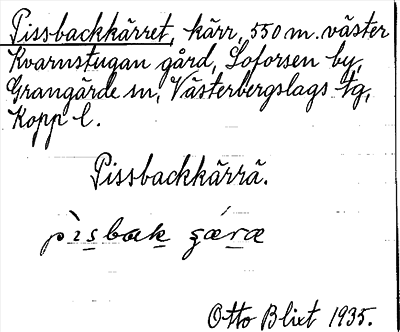 Pissbackkärret, kärr, 550 m. väster
Kvarnstugan gård, Loforsen by,
Grangärde sn, Västerbergslags tg,
Kopp l.
Pissbackkärrä.
pìsbak gǽræ
Otto Blixt 1935.